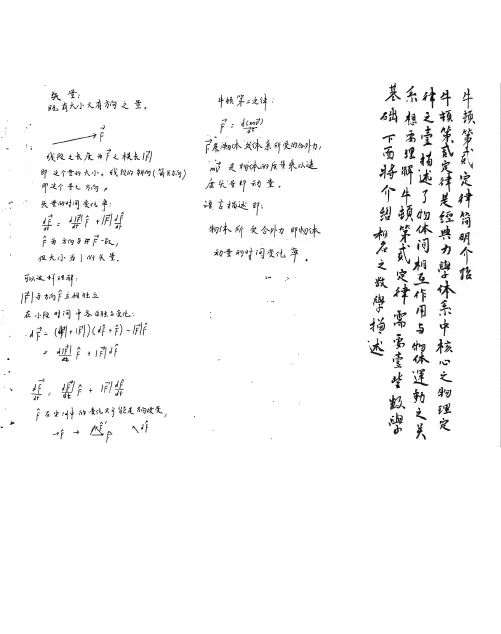 牛頓第贰定律简明介绍
牛頓第贰定律是經典力學体系中核心之物理定
律之壹描述了物体间相互作用与物体運動之关
系想要理解牛頓第贰定律需要壹些數學
基础下面将介绍相关之數學描述
矢量:
既有大小又有方向之量。
→F
线段之长度为F⃗之模长|F⃗|
即这个量的大小。线段的朝向(箭头方向)
即这个量之方向。
矢量的时间变化率:
dF⃗/dt = d|F⃗|/dt F̂ + |F⃗| dF̂/dt
F̂为方向与F⃗一致,
但大小为1的矢量。
可以这样理解:
|F⃗|与方向F̂互相独立
在小段时间中各自独立变化:
dF⃗ = (d|F⃗|+|F⃗|)(dF̂+F̂) - |F⃗|F̂
= d|F⃗|/dt F̂ + |F⃗| dF̂/dt
dF⃗/dt = d|F⃗|/dt F̂ + |F⃗| dF̂/dt
F̂在空间中的变化只可能是方向改变,
→F̂ → F̂' F̂ dF̂
牛顿第二定律:
F⃗ = d(mv⃗)/dt
F⃗是物体或体系所受的合外力,
mv⃗是物体的质量乘以速
度矢量即动量。
语言描述即:
物体所受合外力即物体
动量的时间变化率。